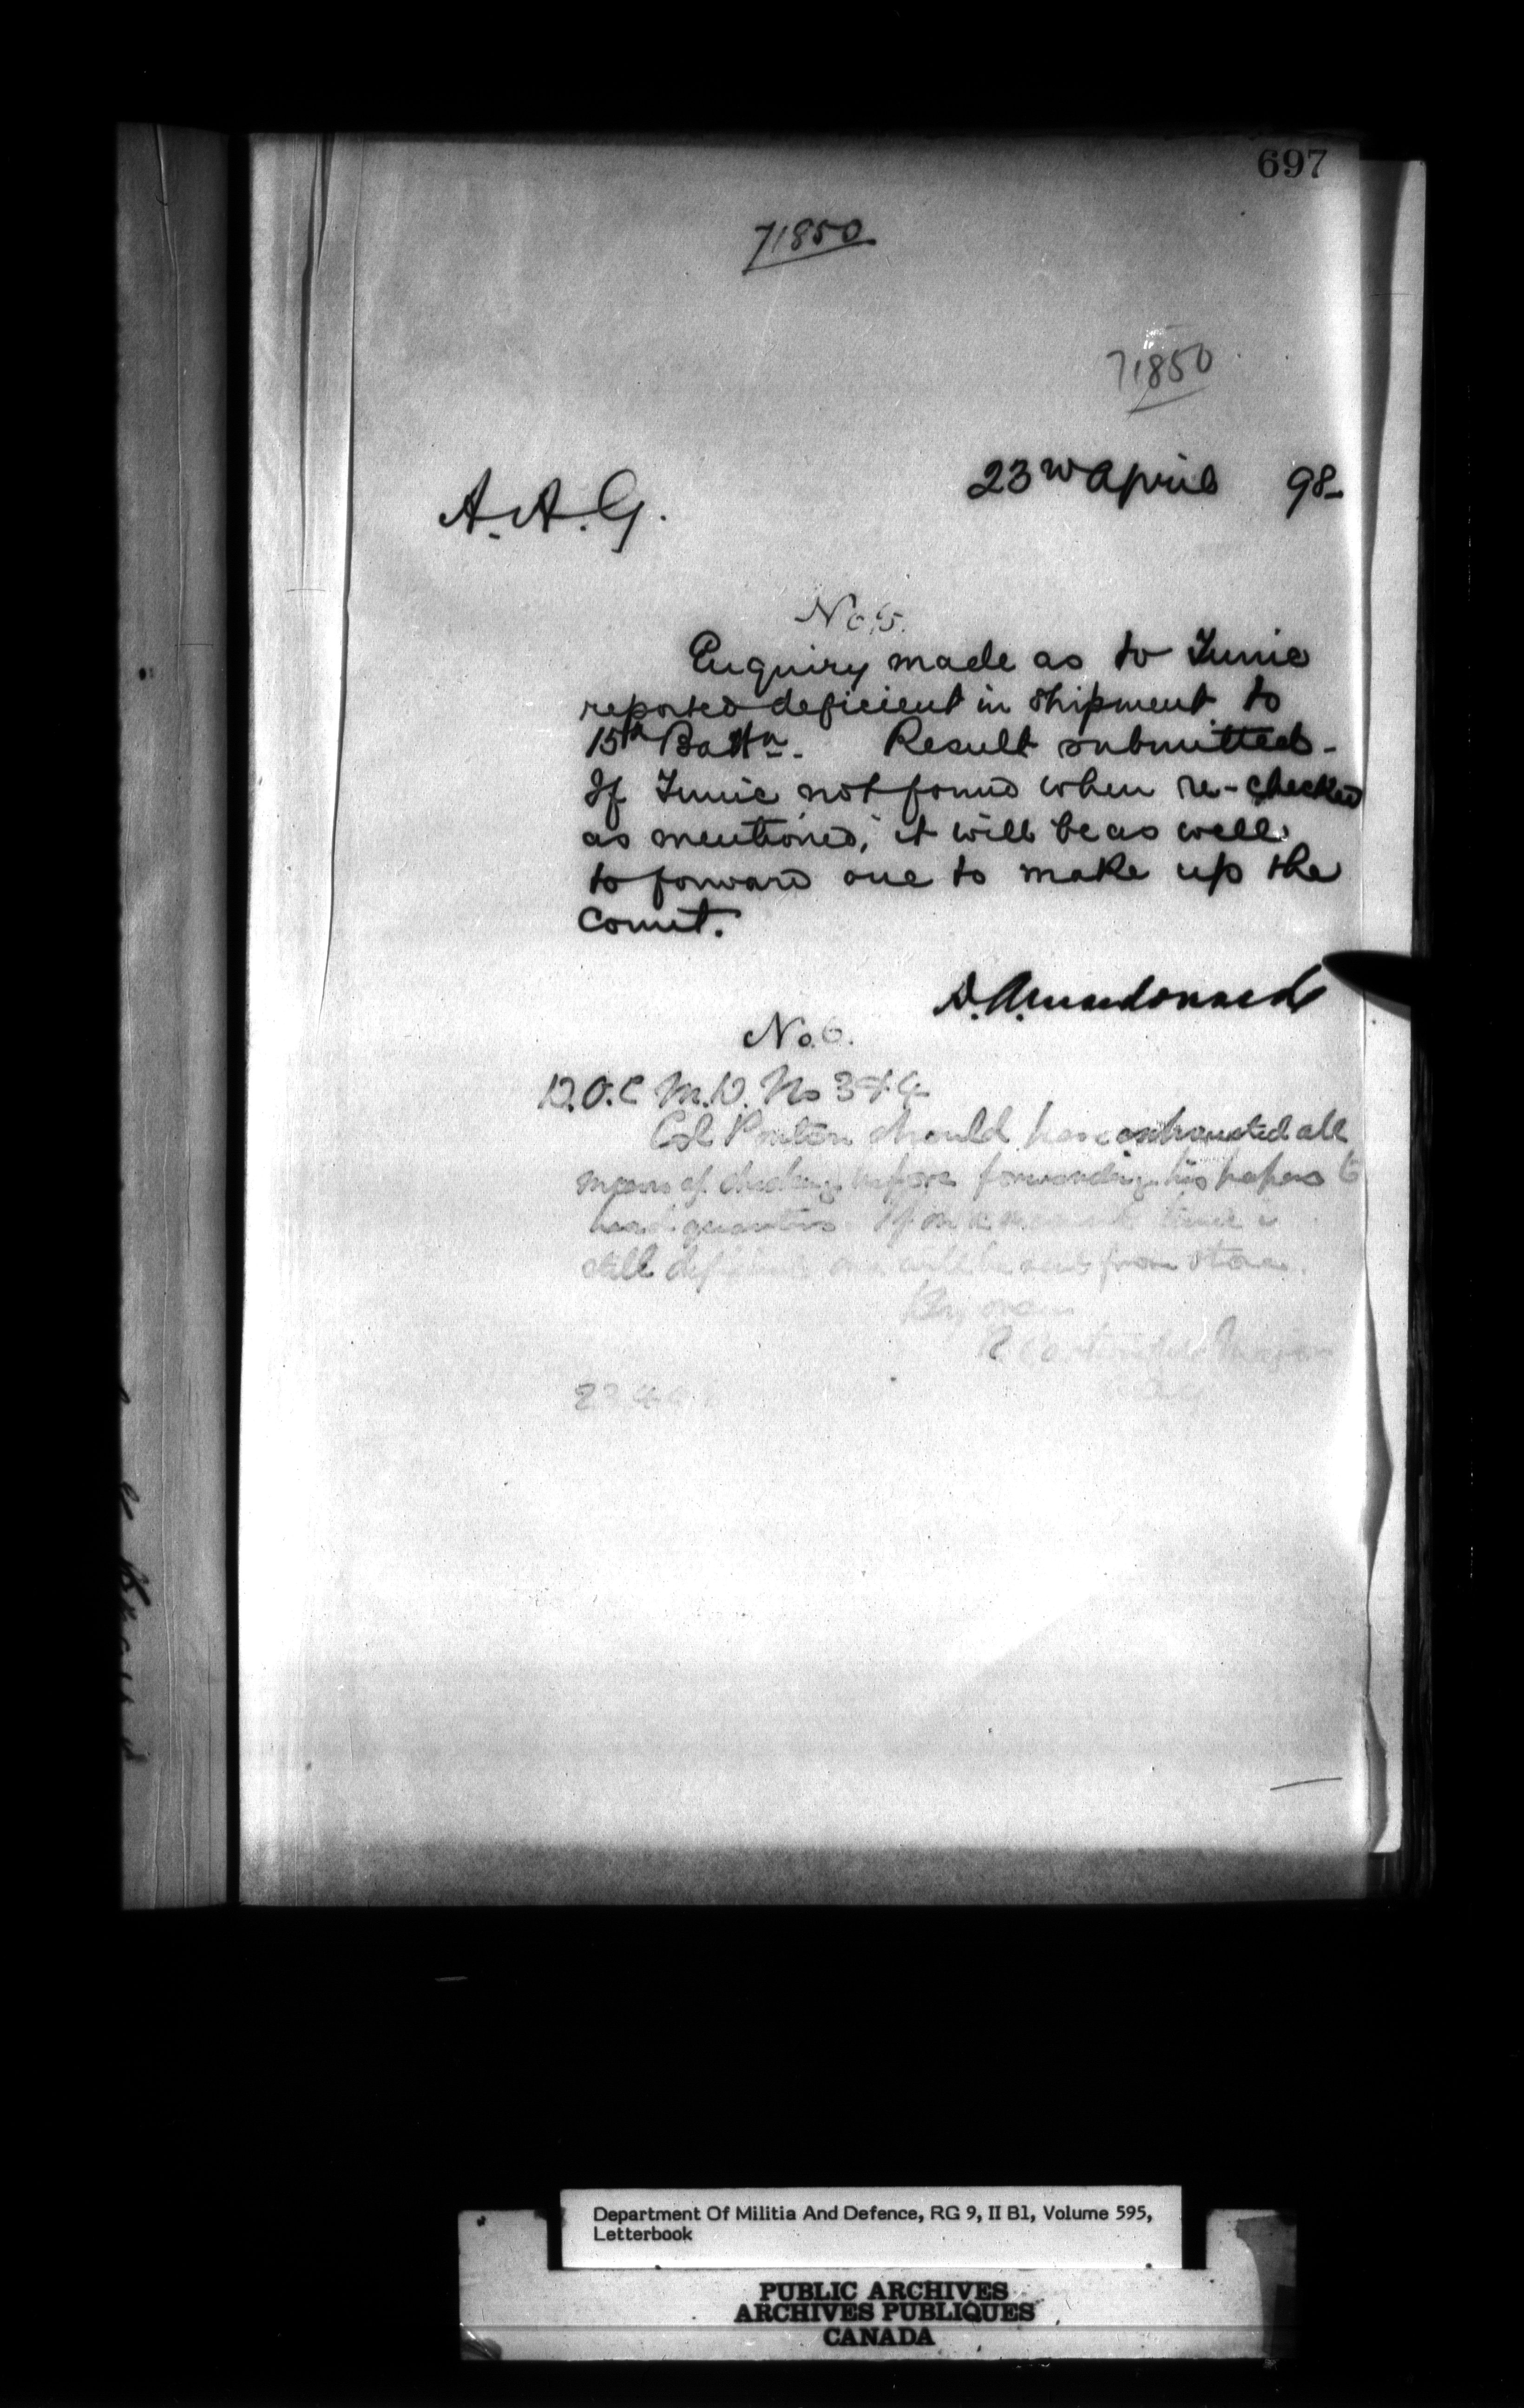 697
71850
71850
23rd April 98-
A.A.G.
No. 5.
Enquiry made as to Tunic
reported deficient in shipment to
15th Battn. Result submitted-
If Tunic not found when re-checked
as mentioned, it will be as well
to forward one to make up the
count.
D.A. Macdonald
No. 6.
D.O.C M.D. No 3 & 4
Col Ponton should have exhausted all
means of checking before forwarding his papers to
head quarters. If on a tunic is
still deficient one will be sent from store.
By order
R Major
Department Of Militia And Defence, RG 9, II B1, Volume 595,
Letterbook
PUBLIC ARCHIVES
ARCHIVES PUBLIQUES
CANADA